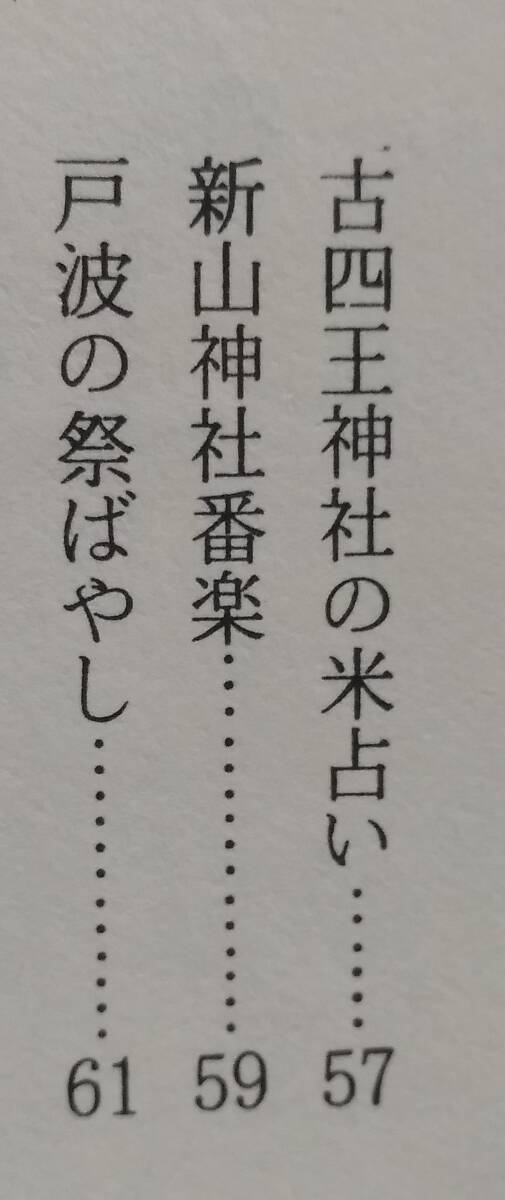 古四王神社の米占い………57
新山神社番楽……………………59
戸波の祭ばやし………………61